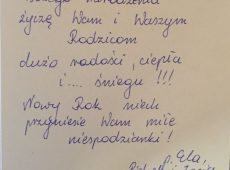 Bożego Narodzenia
życzę Wam i Waszym
Rodzicom
dużo radości, ciepła
i.... śniegu !!!
Nowy Rok niech
przyniesie Wam miłe
niespodzianki !
p. Ela,